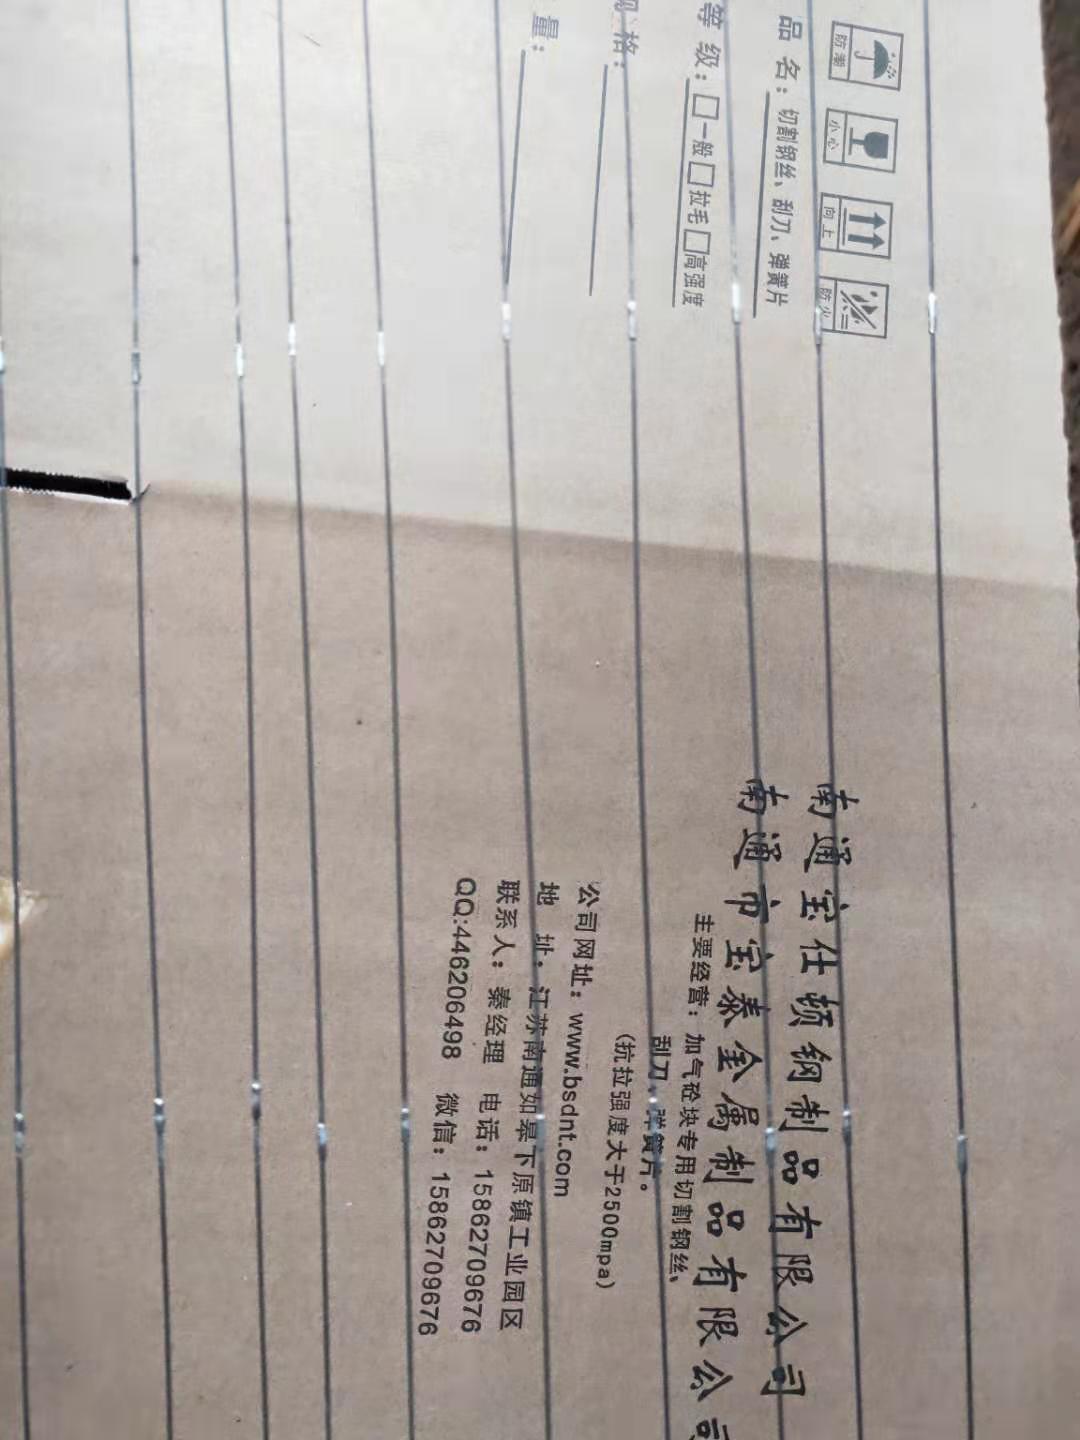 防潮
小心
向上
防火
品 名：切割钢丝、刮刀、弹簧片
等 级：□一般□拉毛□高强度
规 格：
量：
南通宝仕顿钢制品有限公司
南通市宝泰金属制品有限公司
主要经营：加气砼块专用切割钢丝、
刮刀、弹簧片。
(抗拉强度大于2500mpa)
公司网址：www.bsdnt.com
地 址：江苏南通如皋下原镇工业园区
联系人：秦经理 电话：15862709676
QQ:446206498 微信：15862709676